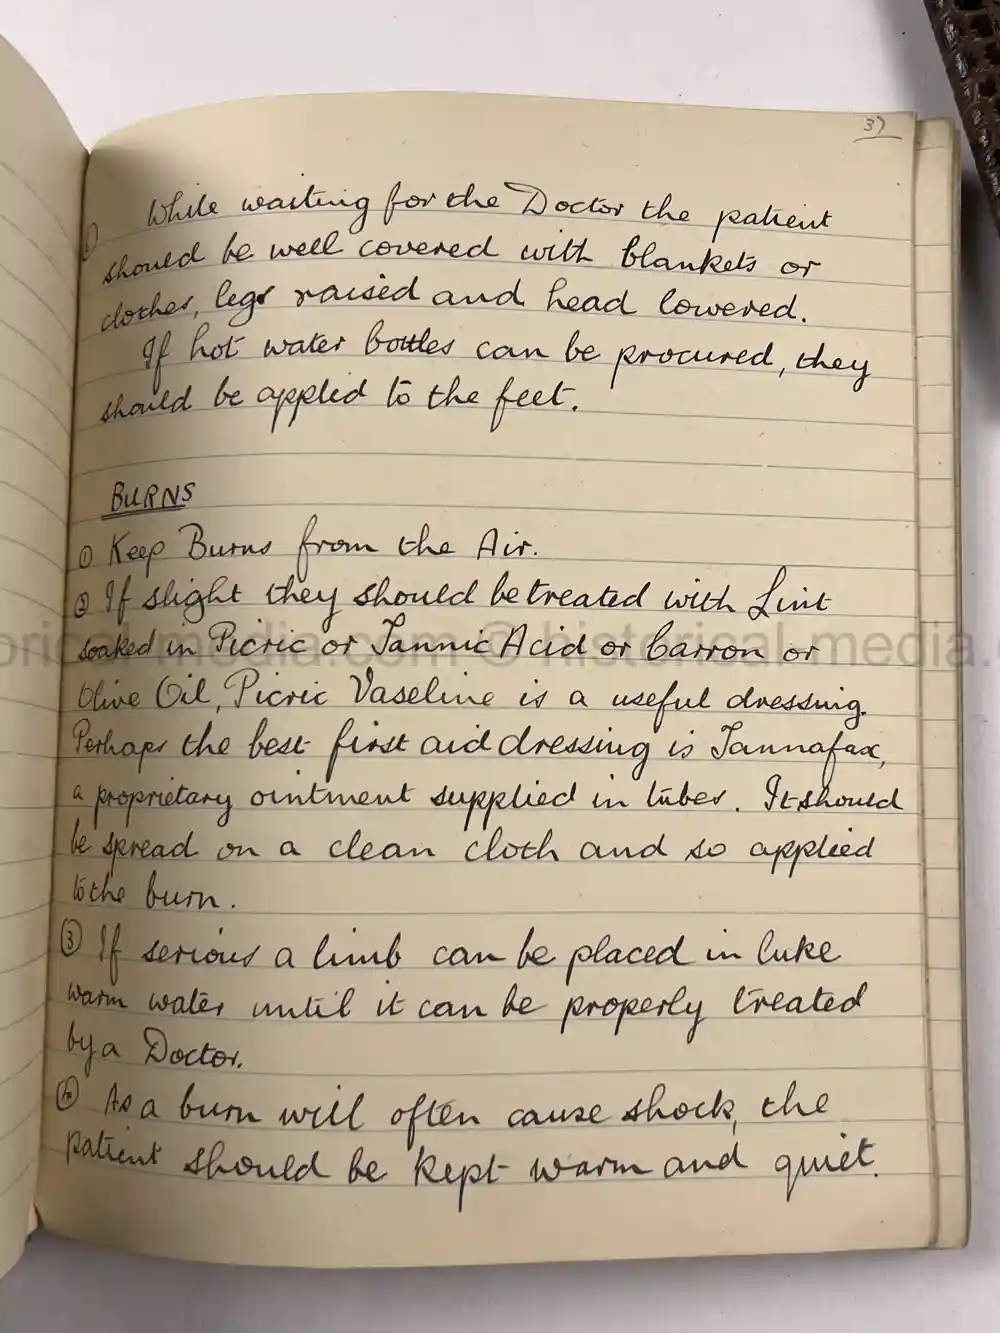 37
While waiting for the Doctor the patient
should be well covered with blankets or
clothes, legs raised and head lowered.
If hot water bottles can be procured, they
should be applied to the feet.
BURNS
① Keep Burns from the Air.
② If slight they should be treated with Lint
soaked in Picric or Tannic Acid or Carron or
Olive Oil, Picric Vaseline is a useful dressing.
Perhaps the best first aid dressing is Tannafax,
a proprietary ointment supplied in tubes. It should
be spread on a clean cloth and so applied
to the burn.
③ If serious a limb can be placed in luke
warm water until it can be properly treated
by a Doctor.
④ As a burn will often cause shock, the
patient should be kept warm and quiet.
orical-media.com © historical-media.c